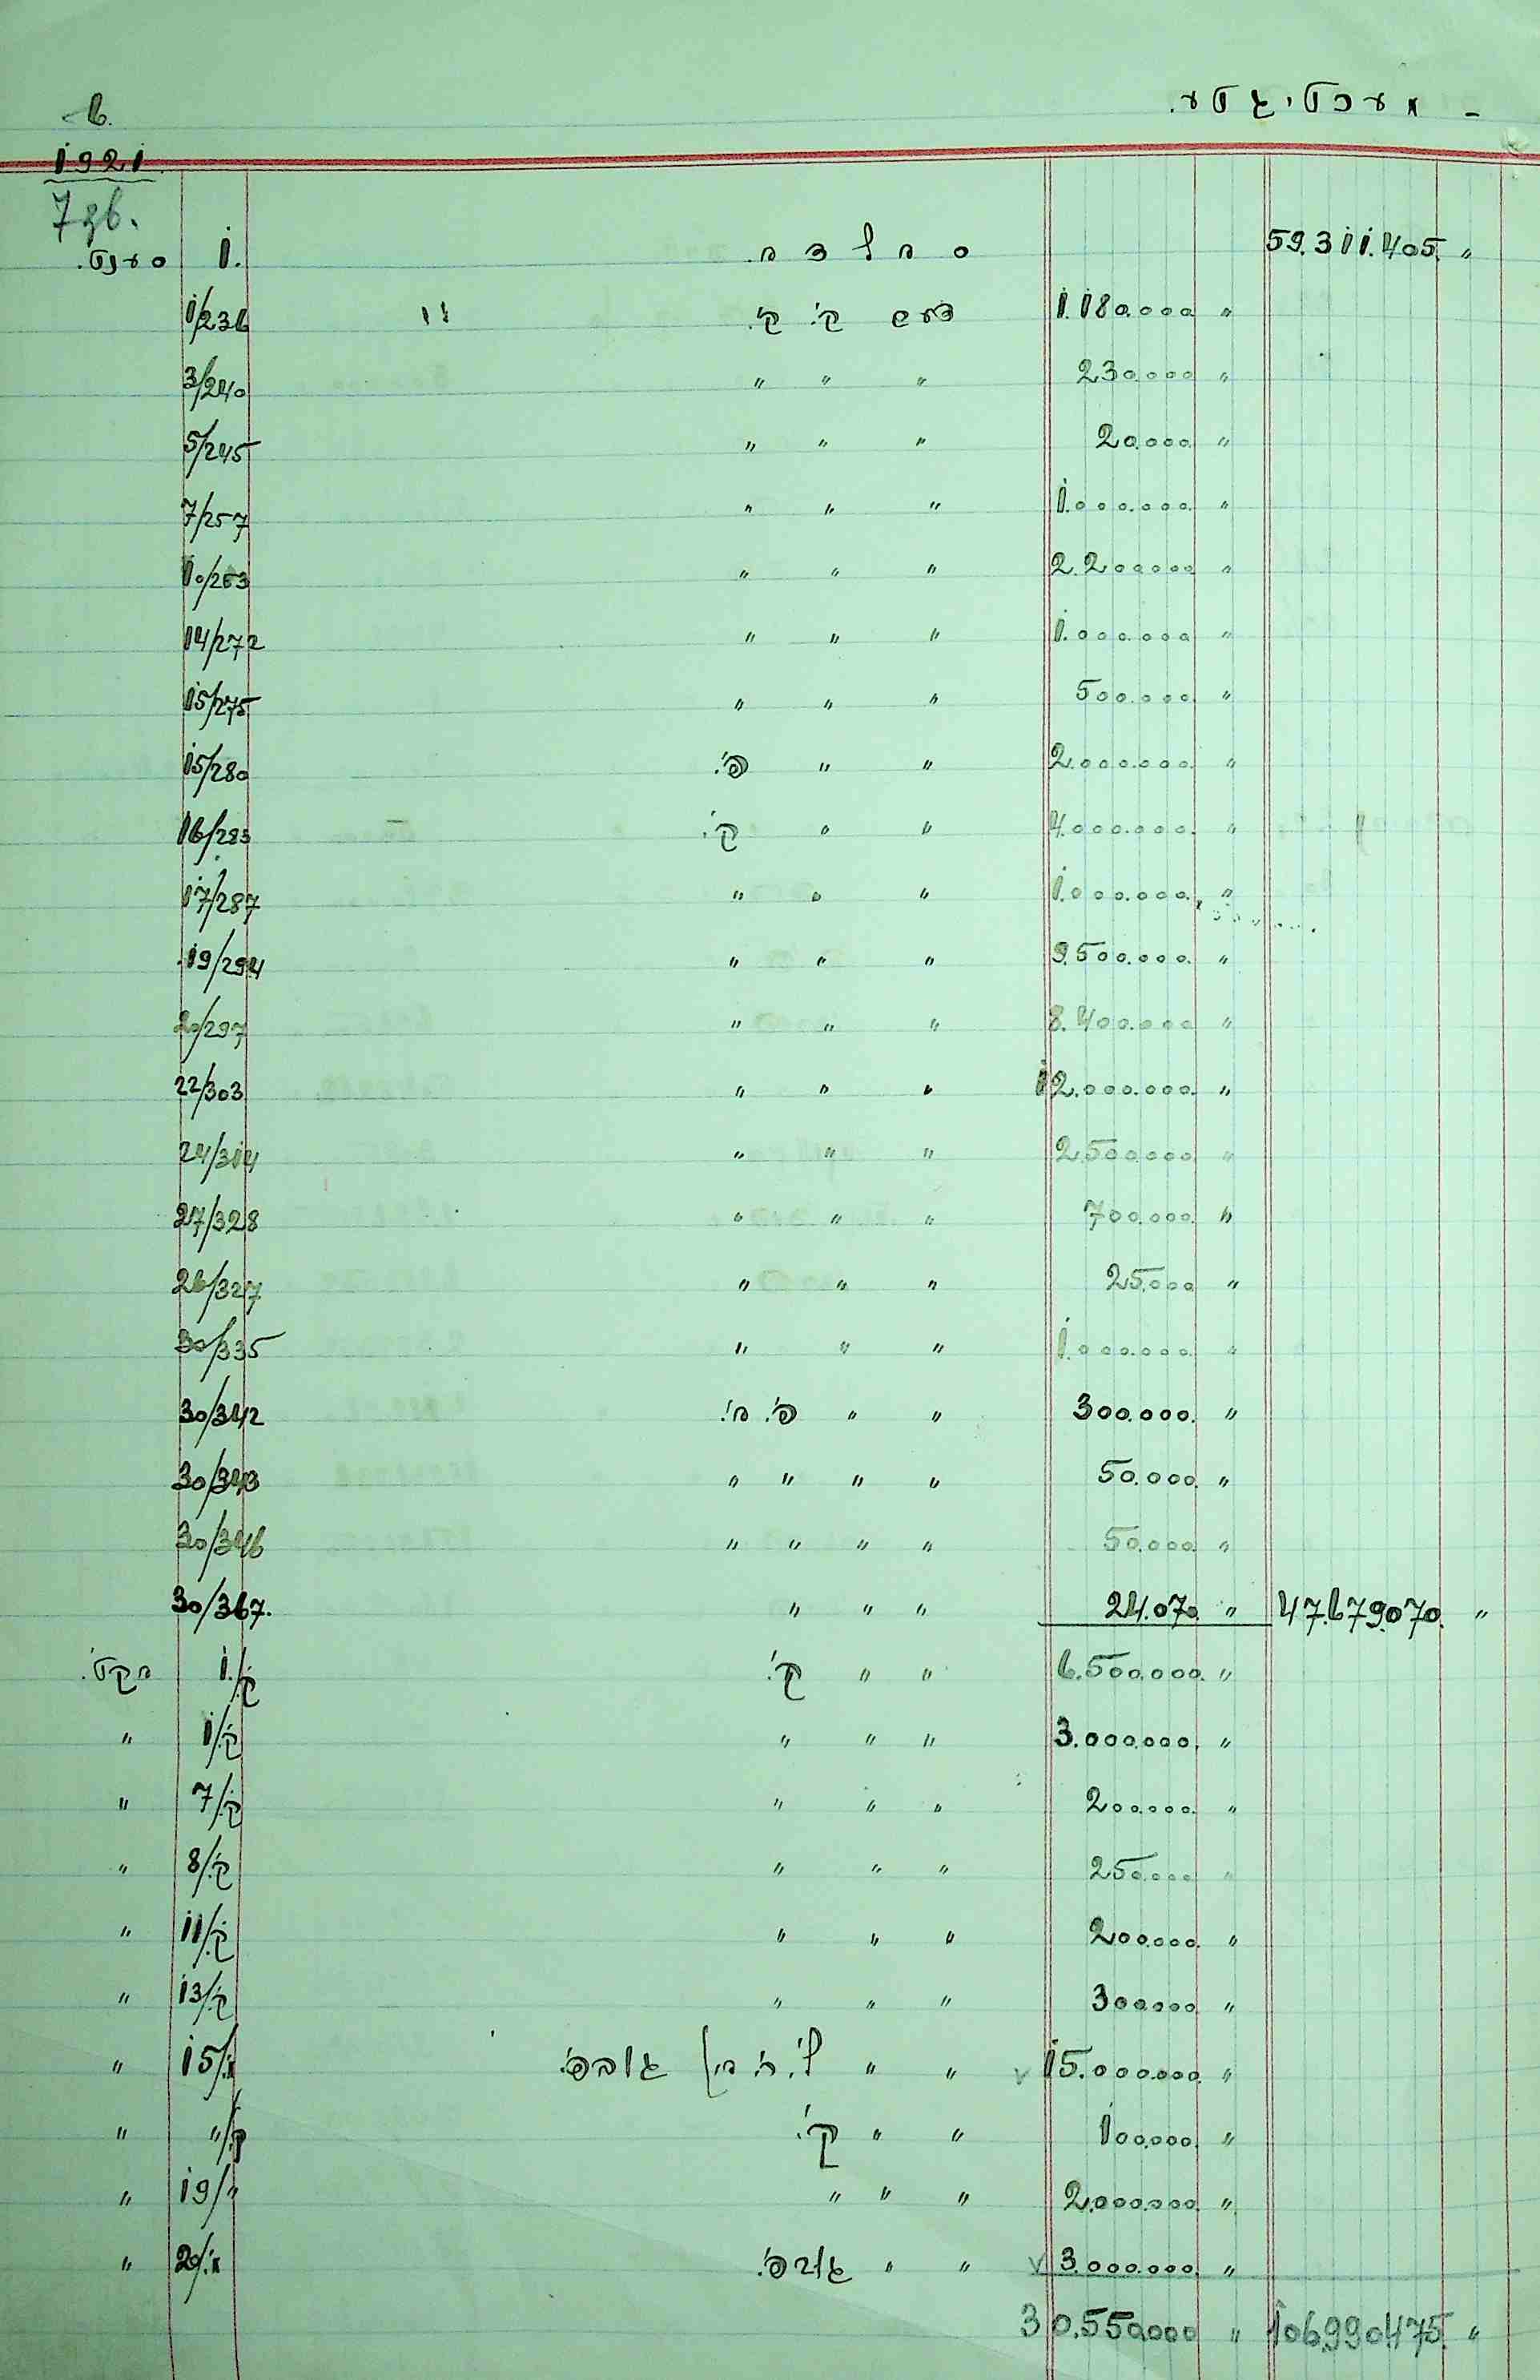 6.
1921
סעפט. 1. סאלדא. 59.311.405. "
1/236 " ק'. ק'. 1.180.000 "
3/240 " " " 230.000 "
5/245 " " " 20.000 "
7/257 " " " 1.000.000. "
10/263 " " " 2.200.000 "
14/272 " " " 1.000.000 "
15/275 " " " 500.000. "
15/280 " " פ'. 2.000.000. "
16/283 " " ק'. 4.000.000. "
17/287 " " " 1.000.000. "
19/294 " " " 9.500.000. "
20/297 " " " 8.400.000 "
22/303 " " " 12.000.000. "
24/314 " " " 2.500.000 "
27/328 " " " 700.000. "
26/327 " " " 25.000 "
30/335 " " " 1.000.000. "
30/342 " " 300.000. "
30/343 " " " " 50.000. "
30/346 " " " " 50.000 "
30/367. " " " 24.070. " 47.679.070. "
אקט'. 1./ק'. " " ק'. 6.500.000. "
" 1/ק'. " " " 3.000.000. "
" 7/ק'. " " " 200.000. "
" 8/ק'. " " " 250.000 "
" 11/ק'. " " " 200.000. "
" 13/ק'. " " " 300.000 "
" 15/א'. " " 15.000.000. "
" "/ק'. " " ק'. 100.000. "
" 19/" " " " 2.000.000. "
" 20/א'. " " 3.000.000. "
30.550.000 " 106.990.475. "